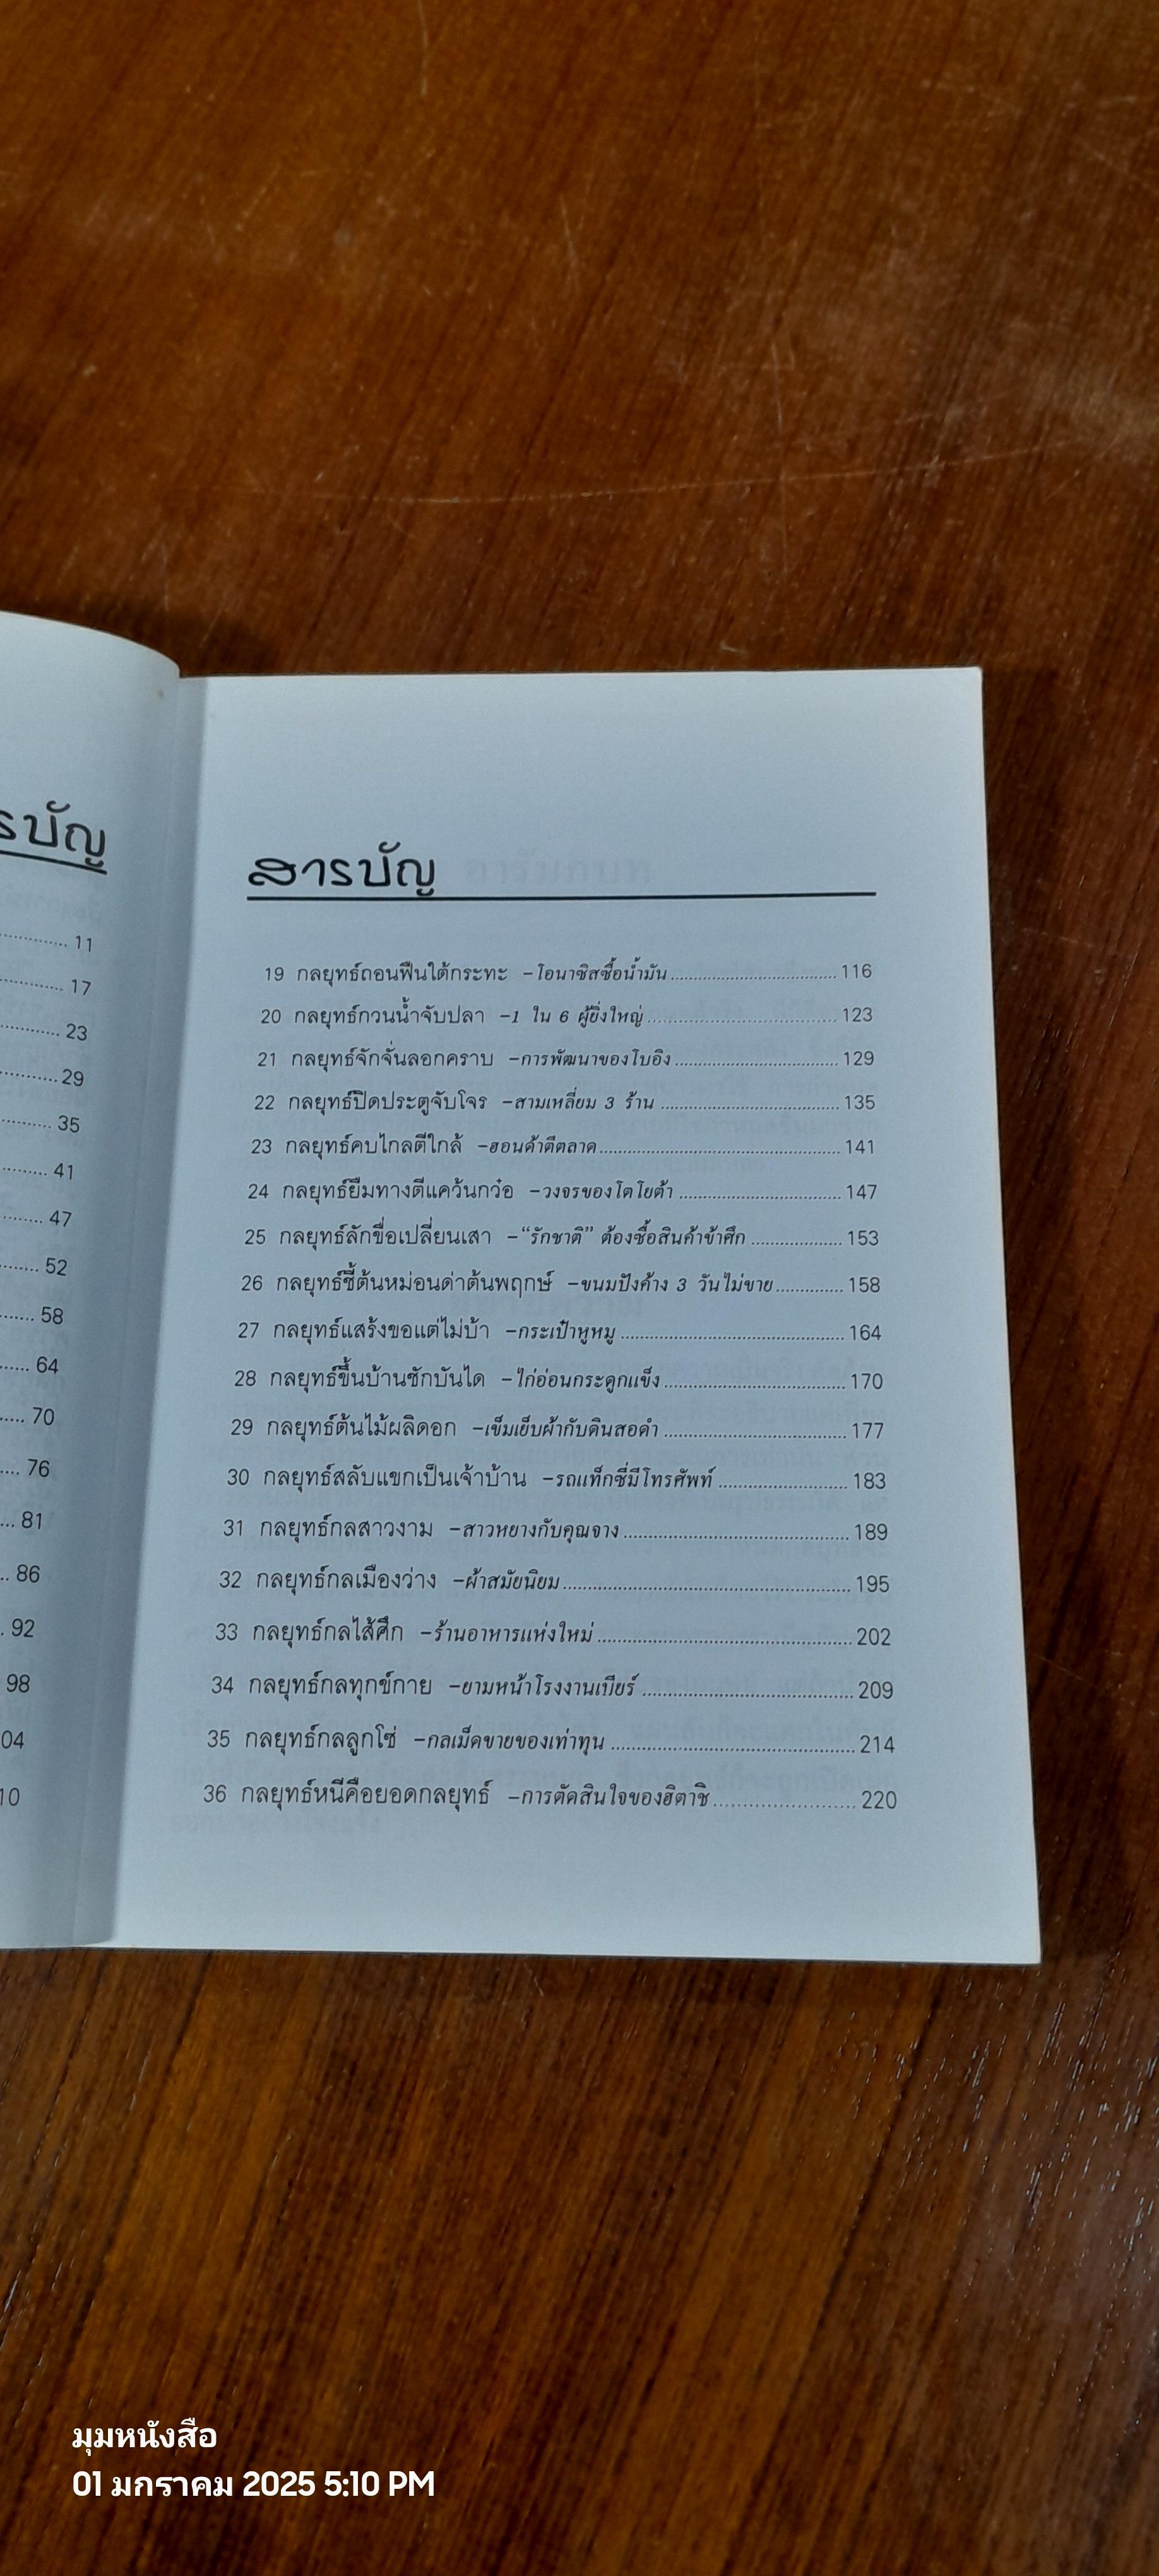 รบัญ
11
17
23
29
35
41
47
52
58
64
70
76
81
86
92
98
04
10
สารบัญ
19 กลยุทธ์ถอนฟืนใต้กระทะ -โอนาซิสซื้อน้ำมัน 116
20 กลยุทธ์กวนน้ำจับปลา -1 ใน 6 ผู้ยิ่งใหญ่ 123
21 กลยุทธ์จักจั่นลอกคราบ -การพัฒนาของโบอิง 129
22 กลยุทธ์ปิดประตูจับโจร -สามเหลี่ยม 3 ร้าน 135
23 กลยุทธ์คบไกลตีใกล้ -ฮอนด้าตีตลาด 141
24 กลยุทธ์ยืมทางตีแคว้นกว๋อ -วงจรของโตโยต้า 147
25 กลยุทธ์ลักขื่อเปลี่ยนเสา -“รักชาติ” ต้องซื้อสินค้าข้าศึก 153
26 กลยุทธ์ชี้ต้นหม่อนด่าต้นพฤกษ์ -ขนมปังค้าง 3 วันไม่ขาย 158
27 กลยุทธ์แสร้งขอแต่ไม่บ้า -กระเป๋าหูหมู 164
28 กลยุทธ์ขึ้นบ้านชักบันได -ไก่อ่อนกระดูกแข็ง 170
29 กลยุทธ์ต้นไม้ผลิดอก -เข็มเย็บผ้ากับดินสอดำ 177
30 กลยุทธ์สลับแขกเป็นเจ้าบ้าน -รถแท็กซี่มีโทรศัพท์ 183
31 กลยุทธ์กลสาวงาม -สาวหยางกับคุณจาง 189
32 กลยุทธ์กลเมืองว่าง -ผ้าสมัยนิยม 195
33 กลยุทธ์กลไส้ศึก -ร้านอาหารแห่งใหม่ 202
34 กลยุทธ์กลทุกข์กาย -ยามหน้าโรงงานเบียร์ 209
35 กลยุทธ์กลลูกโซ่ -กลเม็ดขายของเท่าทุน 214
36 กลยุทธ์หนีคือยอดกลยุทธ์ -การตัดสินใจของฮิตาชิ 220
มุมหนังสือ
01 มกราคม 2025 5:10 PM